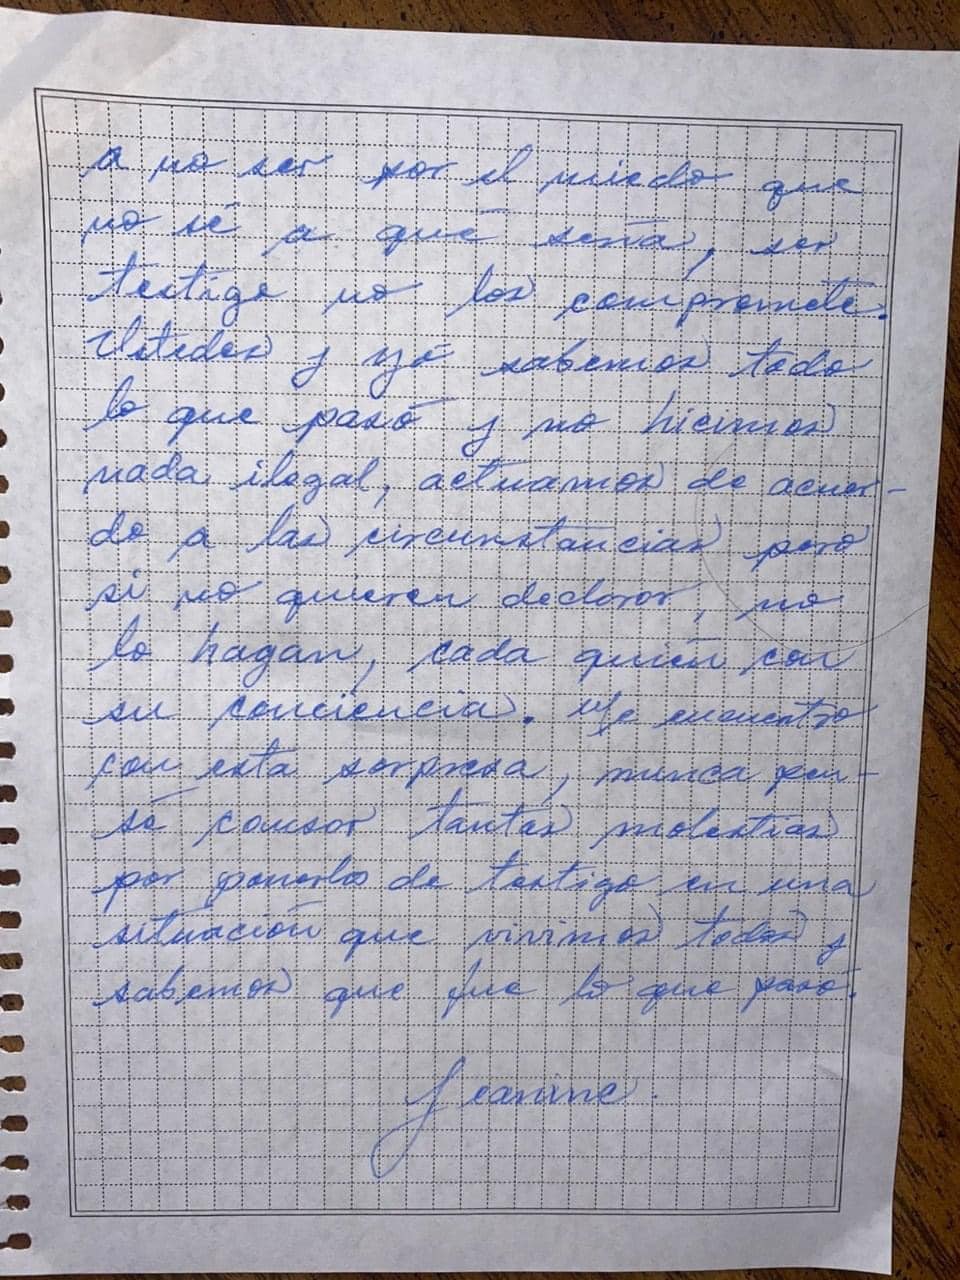 a no ser por el miedo que
no sé a qué sería, ser
testigo no los compromete.
Ustedes y yó sabemos todo
lo que pasó y no hicimos
nada ilegal, actuamos de acuer-
do a las circunstancias pero
si no quieren declarar, no
lo hagan, cada quién con
su conciencia. Me encuentro
con esta sorpresa, nunca pen-
sé causar tantas molestias
por ponerlos de testigo en una
situación que vivimos todos y
sabemos que fue lo que pasó.
Jeanine.